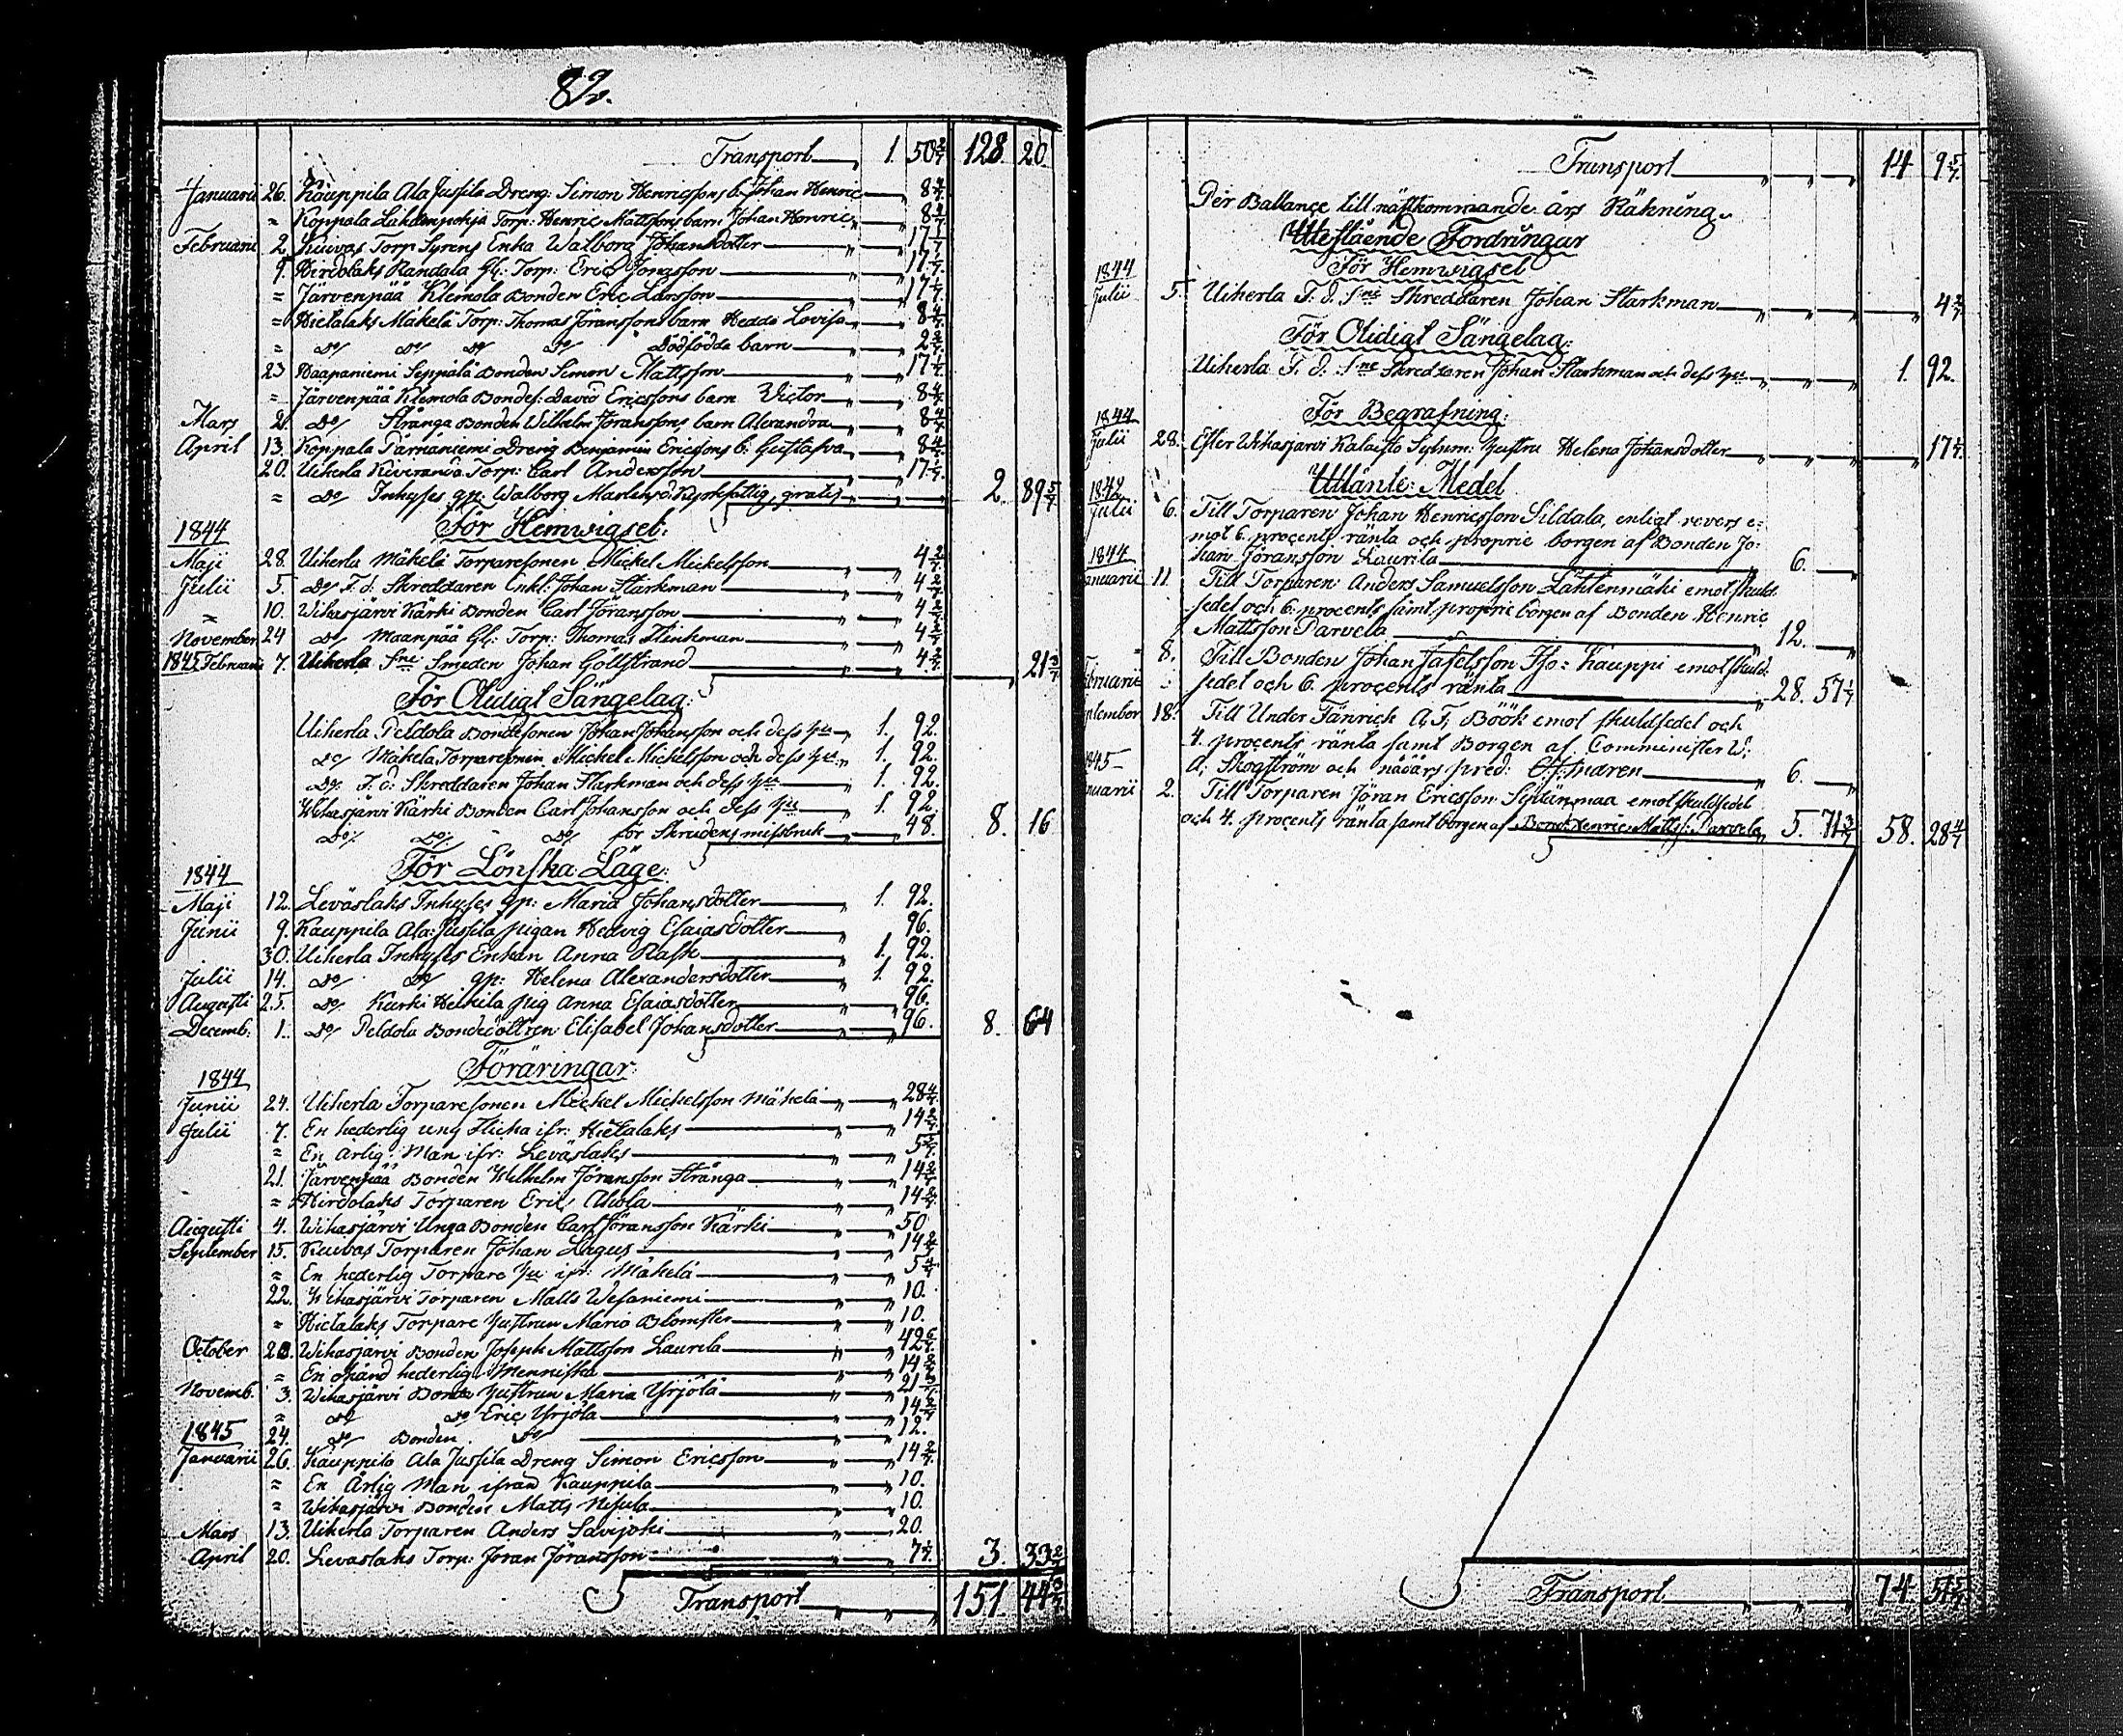 82.
Transport 1. 50 2/7 128 20
Januarii 26. Kauppila Ala Jussila Dreng: Simon Henricssons b. Johan Henric 8 4/7
= Koppala Lahdenpohja Torp: Henric Mattssons barn Johan Henric 8 4/7
Februarii 2 Torp Syrens Enka Walborg Johansdotter 17 1/7
9. Hirdolaks Randala Gl: Torp: Eric Jonasson 17 1/7
= Järvenpää Klemola Bonden Eric Larsson 17 1/7
= Hietalaks Makelä Torp: Thomas Jöranssons barn Hedda Lovisa 8 4/7
= Do Do Do Do Dödfödda barn 2 2/7
23 Haapaniemi Seppälä Bonden Simon Mattsson 17 1/7
= Järvenpää Klemola Bondes: David Ericssons barn Victor 8 4/7
Mars 2. Do Stränga Bonden Wilhelm Jöranssons barn Alexandra 8 4/7
April 13. Koppala Pärnäniemi Dreng Benjamin Ericssons b. Gustafva 8 4/7
20. Uiherla Torp: Carl Andersson 17 1/7
= Do Inhyses qp: Walborg Kyrkfattig, gratis 2. 89 5/7
1844 För Hemwigsel:
Maji 28. Uiherla Mäkelä Torparesonen Mickel Mickelsson 4 2/7
Julii 5. Do F. d. Skreddaren Johan Starkman 4 2/7
= 10. Wihasjärvi Kärki Bonden Carl Jöransson 4 2/7
November 24 Do Maanpää Gl: Torp: Thomas Flinkman 4 2/7
1845 Februarii 7. Uiherla Sne Smeden Johan Göllstrand 4 2/7 21 3/7
För Otidigt Sängelag:
Uiherla Peldola Bondesonen Johan Johansson och dess hu 1. 92.
Do Mäkela Torparesonen Mickel Mickelsson och dess hu 1. 92.
Do F. d. Skreddaren Johan Starkman och dess hu 1. 92.
Wihasjärvi Kärki Bonden Carl Johansson och dess hu 1. 92.
Do Do Do för Skrudens missbruk 48. 8. 16
1844 För Lönska Läge:
Maji 12. Leväslaks Inhyses qp: Maria Johansdotter 1. 92.
Junii 9. Kauppila Ala Jussila pigan Hedvig Esaiasdotter 96.
30. Uiherla Inhyses Enkan Anna Rask 1. 92.
Julii 14. Do Do qp: Helena Alexandersdotter 1. 92.
Augusti 25. Do Kärki Heikila pig Anna Esaiasdotter 96.
Decemb: 1. Do Peldola Bondedottren Elisabet Johansdotter 96. 8. 64
Föräringar:
1844
Junii 24. Uiherla Torparesonen Mickel Mickelsson Mäkelä 28 4/7
Julii 7. En hederlig ung Flicka ifr: Hietalaks 14 2/7
= En ärlig Man ifr: Leväslaks 5 5/7
21. Järvenpää Bonden Wilhelm Jöransson Stränga 14 2/7
= Hirdolaks Torparen Eric Ahola 14 2/7
Augusti 4. Wihasjärvi Unga Bonden Carl Jöransson Kärki 50
September 15. Kuivas Torparen Johan Lagus 14 2/7
= En hederlig Torpare hu ifr: Mäkelä 5 4/7
22. Wihasjärvi Torparen Matts Wesaniemi 10.
= Hietalaks Torpare hustrun Maria Blomster 10.
October 20. Wihasjärvi Bonden Joseph Mattsson Laurila 42 6/7
= En okänd hederlig Menniska 14 2/7
Novemb. 3. Wihasjärvi Bonde hustrun Maria Yrjölä 21 3/7
= Do Do Eric Yrjöla 14 2/7
1845 24. Do Bonden Do 12.
Januarii 26. Kauppila Ala Jussila Dreng Simon Ericsson 14 2/7
= En Ärlig Man ifrån Kauppila 10.
= Wihasjärvi Bonden Matts Nisula 10.
Mars 13. Uiherla Torparen Anders Savijoki 20.
April 20. Levaslaks Torp: Jöran Jöransson 7 1/7 3. 33 2/7
Transport 151. 44 3/7
Transport 14 9 5/7
Pér Ballançe till nästkommande års Räkning.
Utestående Fordringar
För Hemwigsel
1844
Julii 5. Uiherla F. d. Sne Skreddaren Johan Starkman 4 2/7
För Otidigt Sängelag:
Uiherla F. d. Sne Skreddaren Johan Starkman och dess hu 1. 92.
1844 För Begrafning:
Julii 28. Efter Wihasjärvi Kalaisto Sytnm: hustru Helena Johansdotter 17 1/7
Utlänte Medel
1842
Julii 6. Till Torparen Johan Henricsson Sildala, enligt revers e:
mot 6. procents ränta och proprie borgen af Bonden Jo:
1844 han Jöransson Laurila 6.
Januarii 11. Till Torparen Anders Samuelsson Lähtenmäki emot skuld:
sedel och 6. procents samt proprie borgen af Bonden Henric
Mattsson Parvela 12.
8. Till Bonden Johan Josefsson Iso: Kauppi emot skuld:
Februarii sedel och 6. procents ränta 28. 57 1/7
September 18. Till Under Fänrich A. F. Böök emot skuldsedel och
4. procents ränta samt Borgen af Comminister W.
1845 A. Skogström och nådårs pred: Indren 6.
Januarii 2. Till Torparen Jöran Ericsson emot skuldsedel
och 4. procents ränta samt borgen af Bond: Henric Matts: Parvela 5. 71 3/7 58. 28 4/7
Transport 74 51 5/7